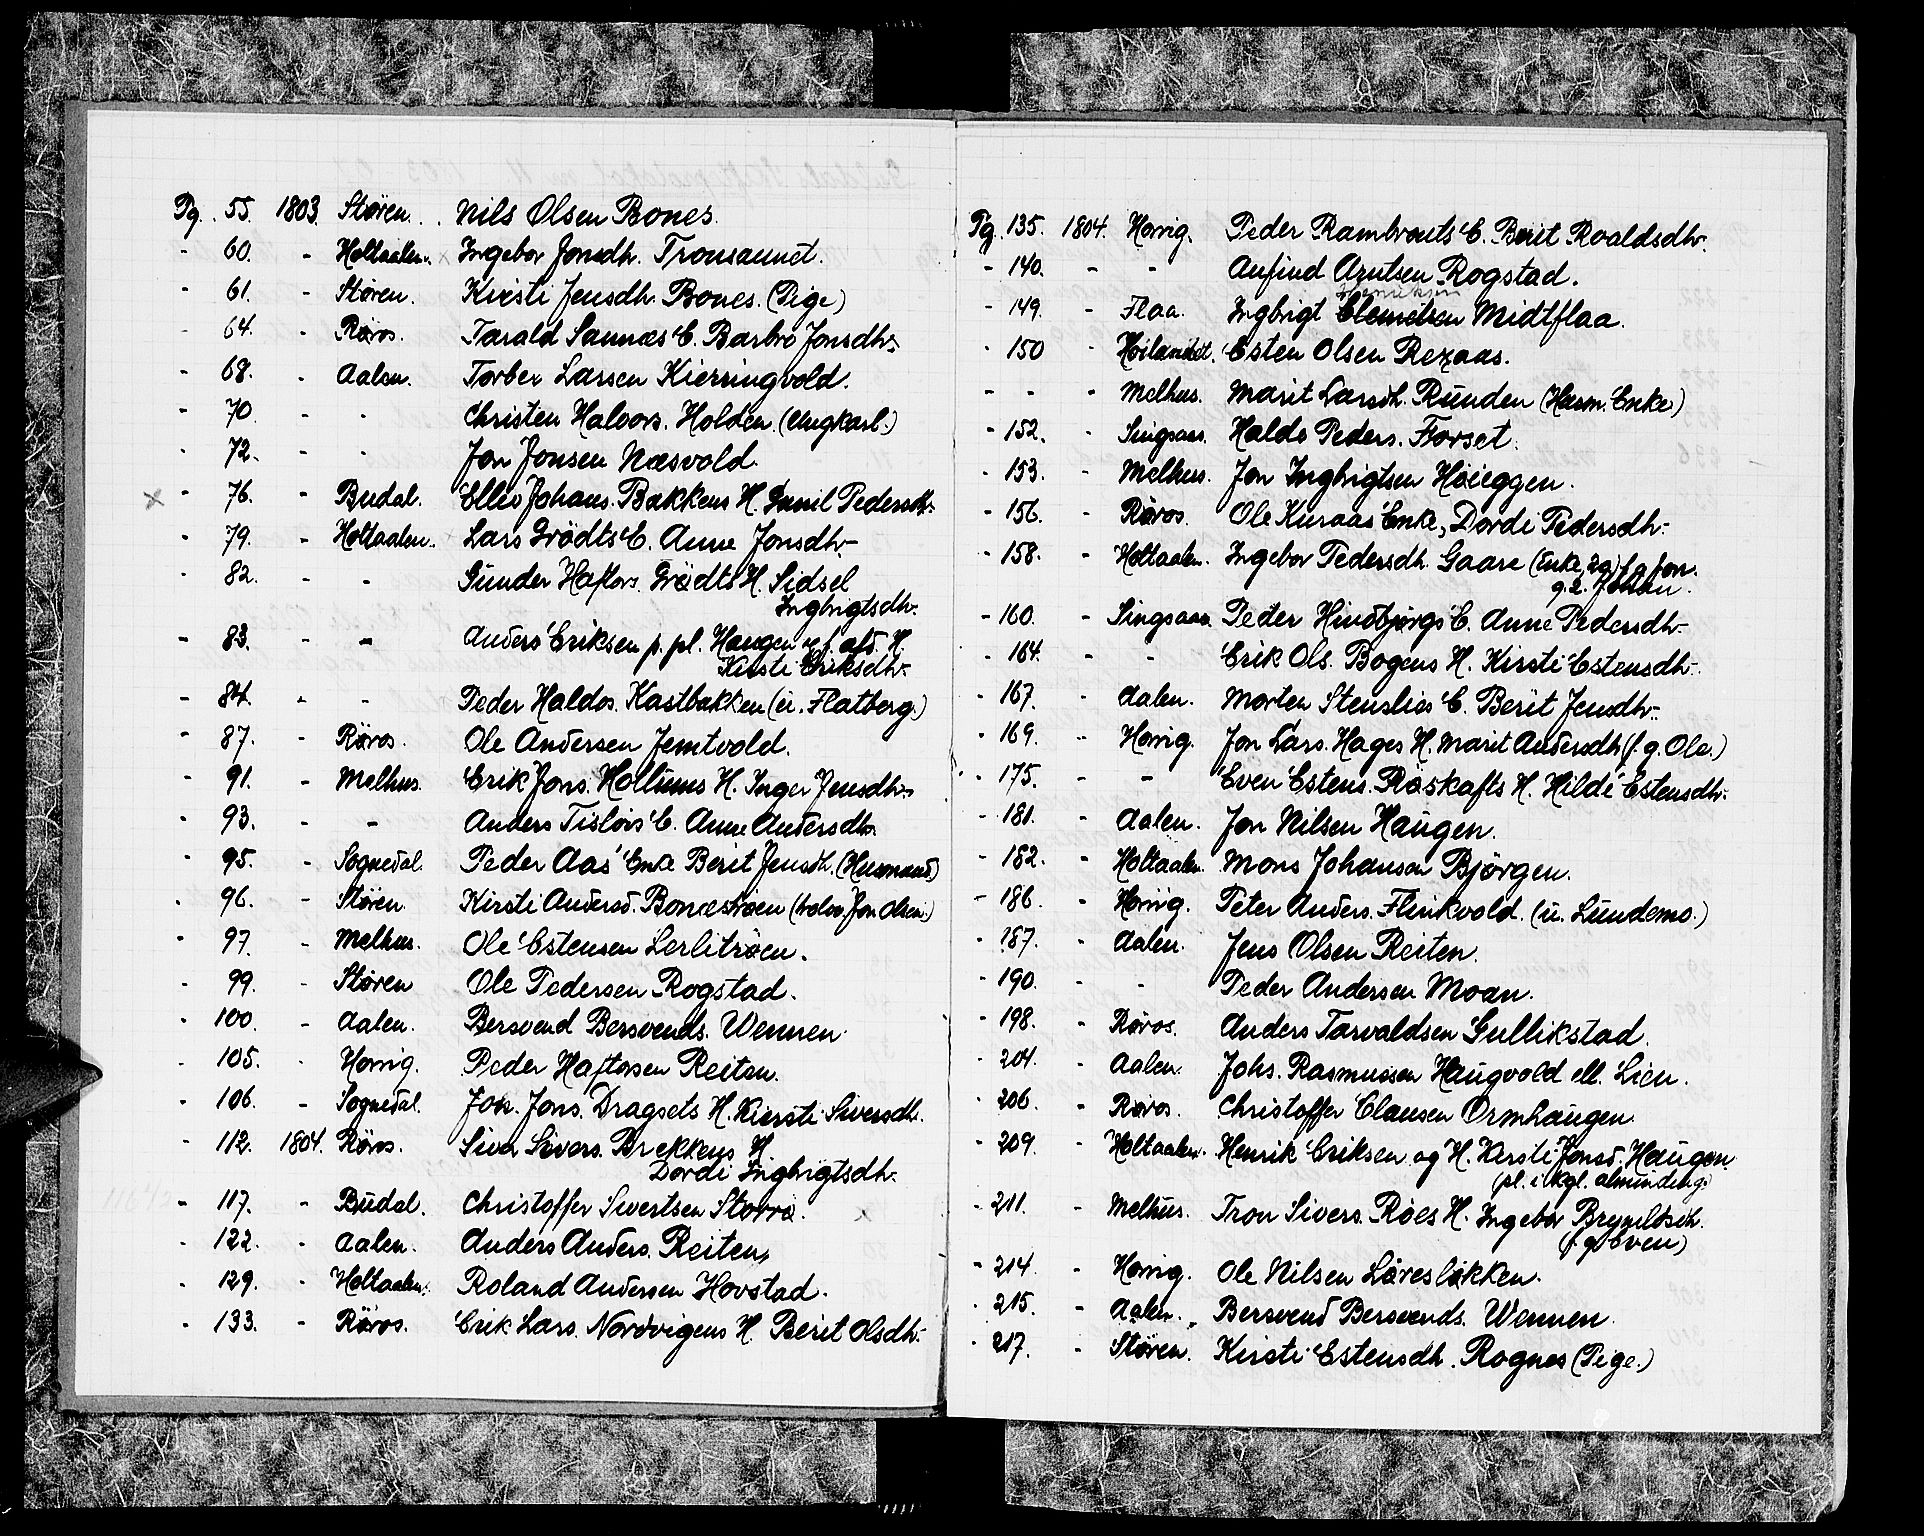 Pg. 55. 1803. Støren. Nils Olsen Bones.
- 60. - Holtaalen. Ingebor Jonsdh. Tronsaunet.
- 61. - Støren. Kirsti Jensdh. Bones. (Pige)
- 64. - Røros. Tarald Saunæs E. Barbro Jonsdh.
- 68. - Aalen. Torber Larsen Kierringvold.
- 70. - - Christen Halvors. Holden. (Ungkarl.)
- 72. - - Jon Jonsen Næsvold.
x - 76. - Budal. Ellev Johans. Bakkens H. Gunil Pedersdh.
- 79. - Holtaalen. Lars Grödts E. Anne Jonsdh.
- 82. - - Gunder Haftors. Grödts H. Sidsel
Ingbrigtsdh.
- 83. - - Anders Eriksen p. pl. Haugen og f. afd. H.
Kirsti Eriksdh.
- 84. - - Peder Haldos. Kastbakken (ei. Flatberg.)
- 87. - Røros. Ole Andersen Jemtvold.
- 91. - Melhus. Erik Jons. Hollums H. Inger Jensdh.
- 93. - - Anders Tisløvs E. Anne Andersdh.
- 95. - Sognedal. Peder Aas' Enke Berit Jensdh. (Husmand)
- 96. - Støren. Kirsti Andersd. Bonæstrøen (Jon Olsen.)
- 97. - Melhus. Ole Estensen Lerlitrøen.
- 99. - Støren Ole Pedersen Rogstad.
- 100. - Aalen. Bersvend Bersvends. Wennen.
- 105. - Horrig. Peder Haftorsen Reiten.
- 106. - Sognedal. Jon. Jons. Dragsets H. Kiersti Siversdh.
- 112. 1804. Røros. Siver Sivers. Brekkens H
Dordi Ingbrigtsdh.
- 117. - Budal. Christoffer Sivertsen Storrø. x
- 122. - Aalen. Anders Anders. Reiten.
- 129. - Holtaalen. Roland Andersen Hovstad.
- 133. - Røros. Erik Lars. Nordvigens H. Berit Olsdh.
Pg. 135. 1804. Horrig. Peder Rambrauts E. Berit Roaldsdh.
- 140. - - Anfind Arntsen Rogstad.
- 149. - Flaa. Ingbrigt Clemetsen Midtflaa.
- 150 - Høilandet. Esten Olsen Rezaas.
- - - Melhus. Marit Larsdh. Runden (Husm. Enke)
- 152. - Singsaas. Haldo Peders. Forset.
- 153. - Melhus. Jon Ingbrigtsen Høieggen.
- 156. - Røros. Ole Kuraas' Enke, Dordi Pedersdh.
- 158. - Holtaalen. Ingebor Pedersdh. Gaare (Enke, 2g) f. g. Jon.
g. 2. Johan.
- 160. - Singsaas. Peder Hindbjørgs E. Anne Pedersdh.
- 164. - - Erik Ols. Bogens H. Kirsti Estensdh.
- 167. - Aalen. Morten Stenslies E. Berit Jensdh.
- 169. - Horrig. Jon Lars. Hages H. Marit Andersdh (f. g. Ole.)
- 175. - - Even Estens. Røskafts H. Hilde Estensdh.
- 181. - Aalen. Jon Nilsen Haugen.
- 182. - Holtaalen. Mons Johansen Bjørgen.
- 186. - Horrig. Peter Anders. Flinkvold. (ei. Lundemo.)
- 187. - Aalen. Jens Olsen Reiten.
- 190. - - Peder Andersen Moan.
- 198. - Røros. Anders Tarvaldsen Gullikstad.
- 204. - Aalen. Johs. Rasmussen Haugvold ell. Lien.
- 206. - Røros. Christoffer Clausen Ormhaugen.
- 209. - Holtaalen. Henrik Eriksen og H. Kirsti Jonsd. Haugen
(pl. i kgl. alminding.)
- 211. - Melhus. Tron Sivers. Røes H. Ingebor Brynildsdh.
(f. g. Even)
- 214. - Horrig. Ole Nilsen Løresløkken.
- 215. - Aalen. Bersvend Bersvends. Wennen.
- 217. - Støren. Kirsti Estensdh. Rognes (Pige.)